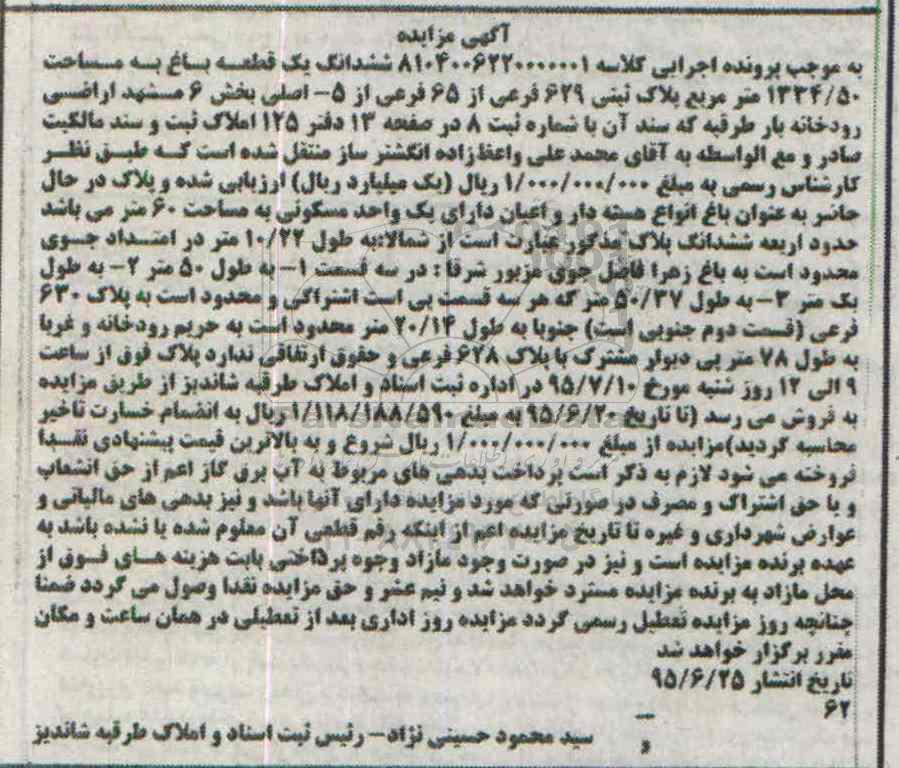 آگهی مزایده
به موجب پرونده اجرایی کلاسه ۸۱۰۴۰۰۶۲۲۰۰۰۰۰۰۱ ششدانگ یک قطعه باغ به مساحت
۱۳۳۴/۵۰ متر مربع پلاک ثبتی ۶۲۹ فرعی از ۶۵ فرعی از ۵- اصلی بخش ۶ مشهد اراضی
رودخانه بار طرقبه که سند آن با شماره ثبت ۸ در صفحه ۱۳ دفتر ۱۲۵ املاک ثبت و سند مالکیت
صادر و مع الواسطه به آقای محمد علی واعظ زاده انگشتر ساز منتقل شده است که طبق نظر
کارشناس رسمی به مبلغ ۱/۰۰۰/۰۰۰/۰۰۰ ریال (یک میلیارد ریال) ارزیابی شده و پلاک در حال
حاضر به عنوان باغ انواع هسته دار و اعیان دارای یک واحد مسکونی به مساحت ۶۰ متر می باشد
حدود اربعه ششدانگ پلاک مذکور عبارت است از شمالا:به طول ۱۰/۲۲ متر در امتداد جوی
محدود است به باغ زهرا فاضل جوی مزبور شرقا : در سه قسمت ۱- به طول ۵۰ متر ۲- به طول
یک متر ۳- به طول ۵۰/۳۷ متر که هر سه قسمت پی است اشتراکی و محدود است به پلاک ۶۳۰
فرعی (قسمت دوم جنوبی است) جنوبا به طول ۲۰/۱۴ متر محدود است به حریم رودخانه و غربا
به طول ۷۸ متر پی دیوار مشترک با پلاک ۶۲۸ فرعی و حقوق ارتفاقی ندارد پلاک فوق از ساعت
۹ الی ۱۲ روز شنبه مورخ ۹۵/۷/۱۰ در اداره ثبت اسناد و املاک طرقبه شاندیز از طریق مزایده
به فروش می رسد (تا تاریخ ۹۵/۶/۲۰ به مبلغ ۱/۱۱۸/۱۸۸/۵۹۰ ریال به انضمام خسارت تاخیر
محاسبه گردید)مزایده از مبلغ ۱/۰۰۰/۰۰۰/۰۰۰ ریال شروع و به بالاترین قیمت پیشنهادی نقدا
فروخته می شود لازم به ذکر است پرداخت بدهی های مربوط به آب برق گاز اعم از حق انشعاب
و یا حق اشتراک و مصرف در صورتی که مورد مزایده دارای آنها باشد و نیز بدهی های مالیاتی و
عوارض شهرداری و غیره تا تاریخ مزایده اعم از اینکه رقم قطعی آن معلوم شده یا نشده باشد به
عهده برنده مزایده است و نیز در صورت وجود مازاد وجوه پرداختی بابت هزینه های فوق از
محل مازاد به برنده مزایده مسترد خواهد شد و نیم عشر و حق مزایده نقدا وصول می گردد ضمنا
چنانچه روز مزایده تعطیل رسمی گردد مزایده روز اداری بعد از تعطیلی در همان ساعت و مکان
مقرر برگزار خواهد شد
تاریخ انتشار ۹۵/۶/۲۵
۶۲
سید محمود حسینی نژاد- رئیس ثبت اسناد و املاک طرقبه شاندیز